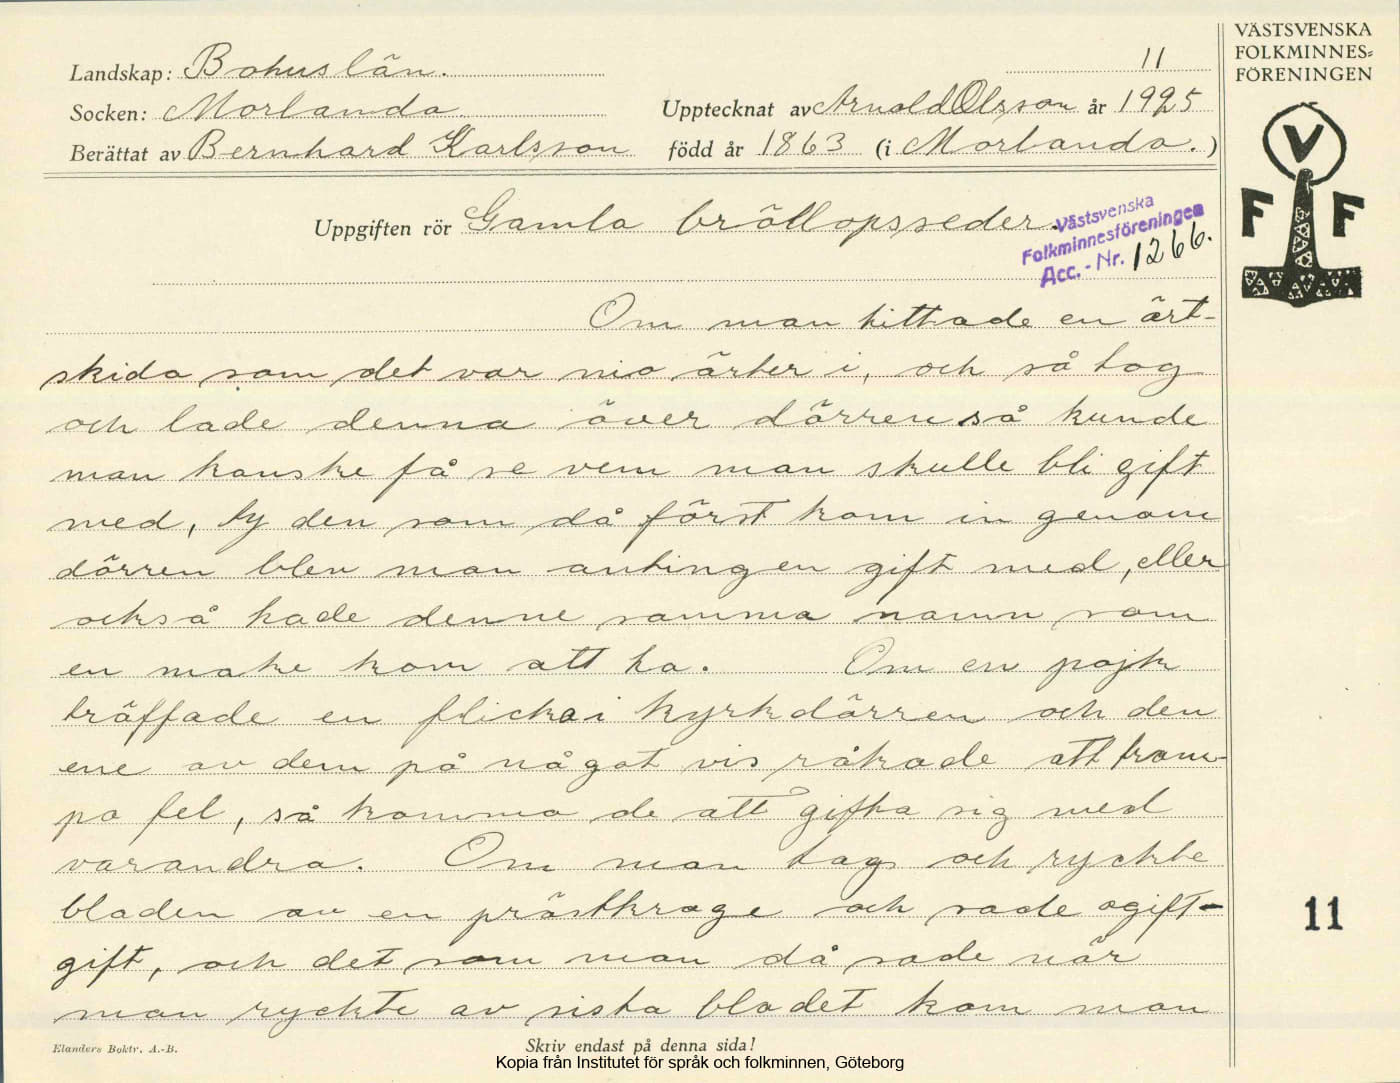 VÄSTSVENSKA
FOLKMINNES=
FÖRENINGEN
V
F F
11
Landskap: Bohuslän.
Socken: Morlanda
Upptecknat av Arnold Olsson år 1925
Berättat av Bernhard Karlsson född år 1863 (i Morlanda.)
Uppgiften rör Gamla bröllopsseder.
Västsvenska
Folkminnesföreningen
Acc. - Nr. 1266.
Om man hittade en ärt-
skida som det var nio ärter i, och så tog
och lade denna över dörren så kunde
man kanske få se vem man skulle bli gift
med, ty den som då först kom in genom
dörren blev man antingen gift med, eller
också hade denne samma namn som
en make kom att ha. Om en pojk
träffade en flicka i kyrkdörren och den
ene av dem på något vis råkade att tram-
pa fel, så komma de att gifta sig med
varandra. Om man tog och ryckte
bladen av en prästkrage och sade ogift-
gift, och det som man då sade när
man ryckte av sista bladet kom man
11
Elanders Boktr. A.-B.
Skriv endast på denna sida!
Kopia från Institutet för språk och folkminnen, Göteborg